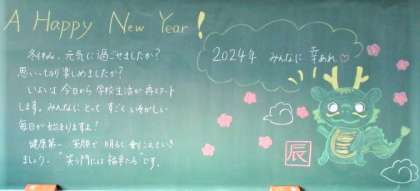 A Happy New Year!
冬休み、元気に過ごせましたか?
思いっきり楽しめましたか?
いよいよ今日から学校生活が再スタート
します。みんなにとって すごくいそがしい
毎日が始まりますよ!
健康第一、笑顔で 明るく
ましょう。"笑う門には福来たる"です。
2024年 みんなに 幸あれ♡
辰